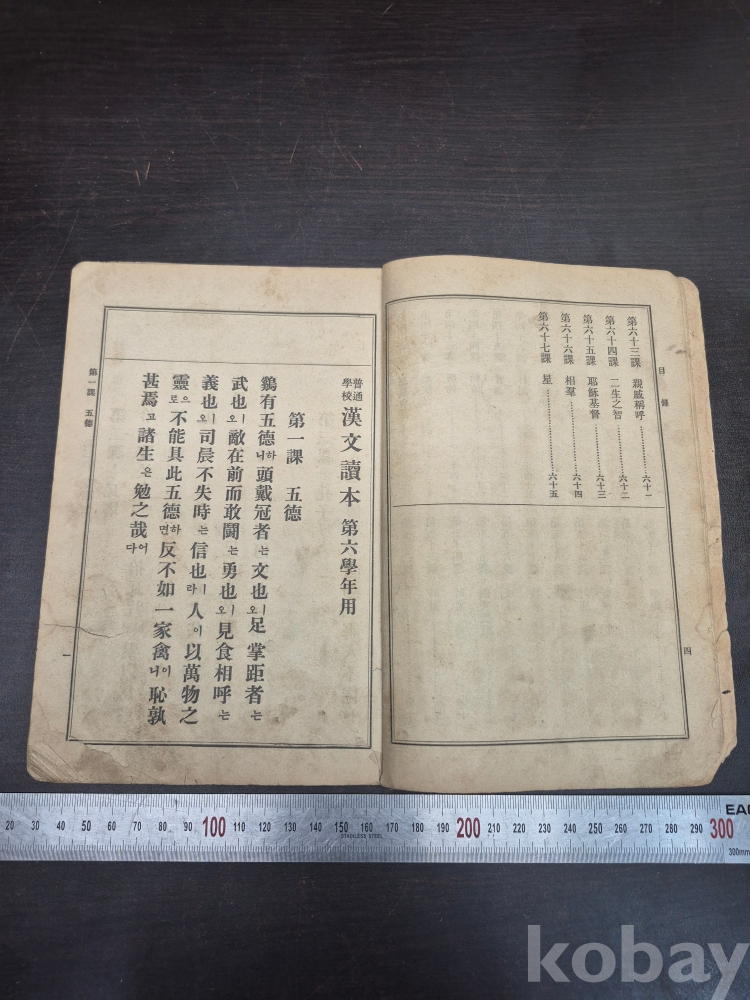 目錄
第六十三課 親戚稱呼…………六十一
第六十四課 二生之智…………六十二
第六十五課 耶穌基督…………六十三
第六十六課 相羣…………六十四
第六十七課 星…………六十五
四
普通學校 漢文讀本 第六學年用
第一課 五德
鷄有五德하니頭戴冠者는文也ㅣ오足掌距者는
武也ㅣ오敵在前而敢鬪는勇也ㅣ오見食相呼는
義也ㅣ오司晨不失時는信也ㅣ라人이以萬物之
靈으로不能具此五德하면反不如一家禽이니恥孰
甚焉고諸生은勉之哉어다
第一課 五德
一
20 30 40 50 60 70 80 90 100 110 120 130 140 150 160 170 180 190 200 210 220 230 240 250 260 270 280 290 300
STAINLESS STEEL
300mm
kobay